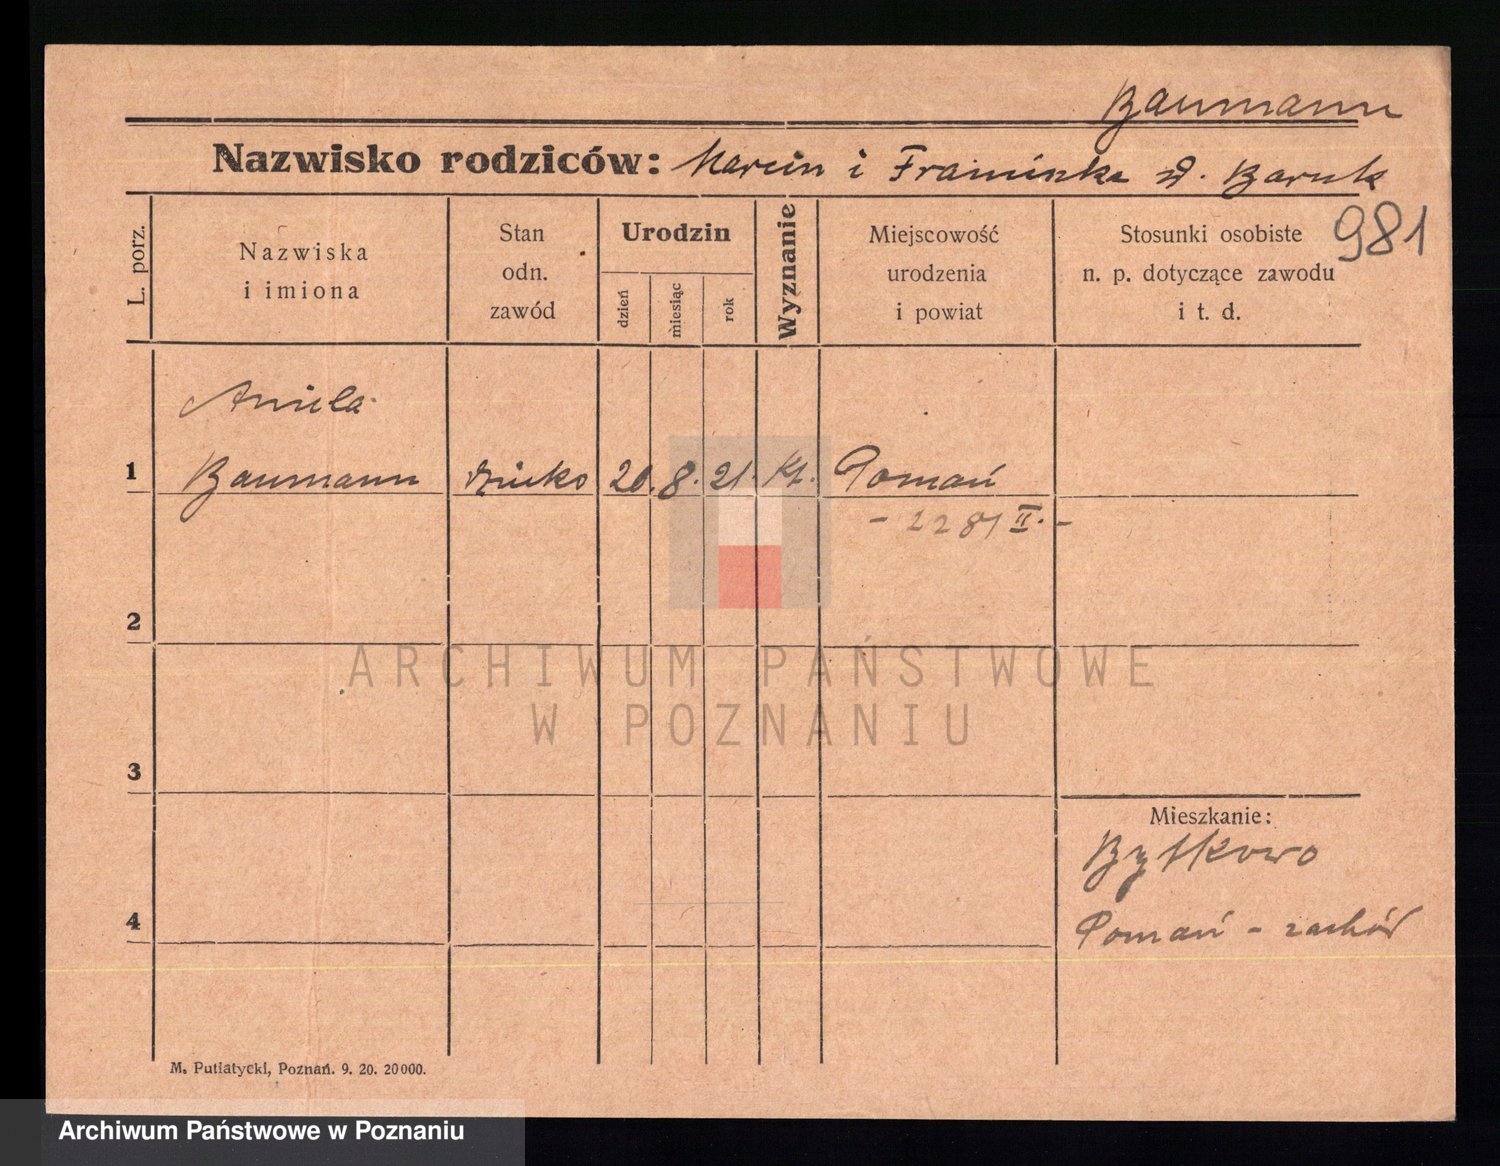 Baumann
Nazwisko rodziców: Marcin i Franciszka z d. Baruk
981
L. porz.
Nazwiska
i imiona
Stan
odn.
zawód
Urodzin
dzień
miesiąc
rok
Wyznanie
Miejscowość
urodzenia
i powiat
Stosunki osobiste
n. p. dotyczące zawodu
i t. d.
Aniela
1 Baumann dziecko 20. 8. 21. kt. Poznań
- 2281 II. -
2
3
4
Mieszkanie:
Bytkowo
Poznań - zachód
M. Putiatycki, Poznań. 9. 20. 20000.
ARCHIWUM PAŃSTWOWE
W POZNANIU
Archiwum Państwowe w Poznaniu